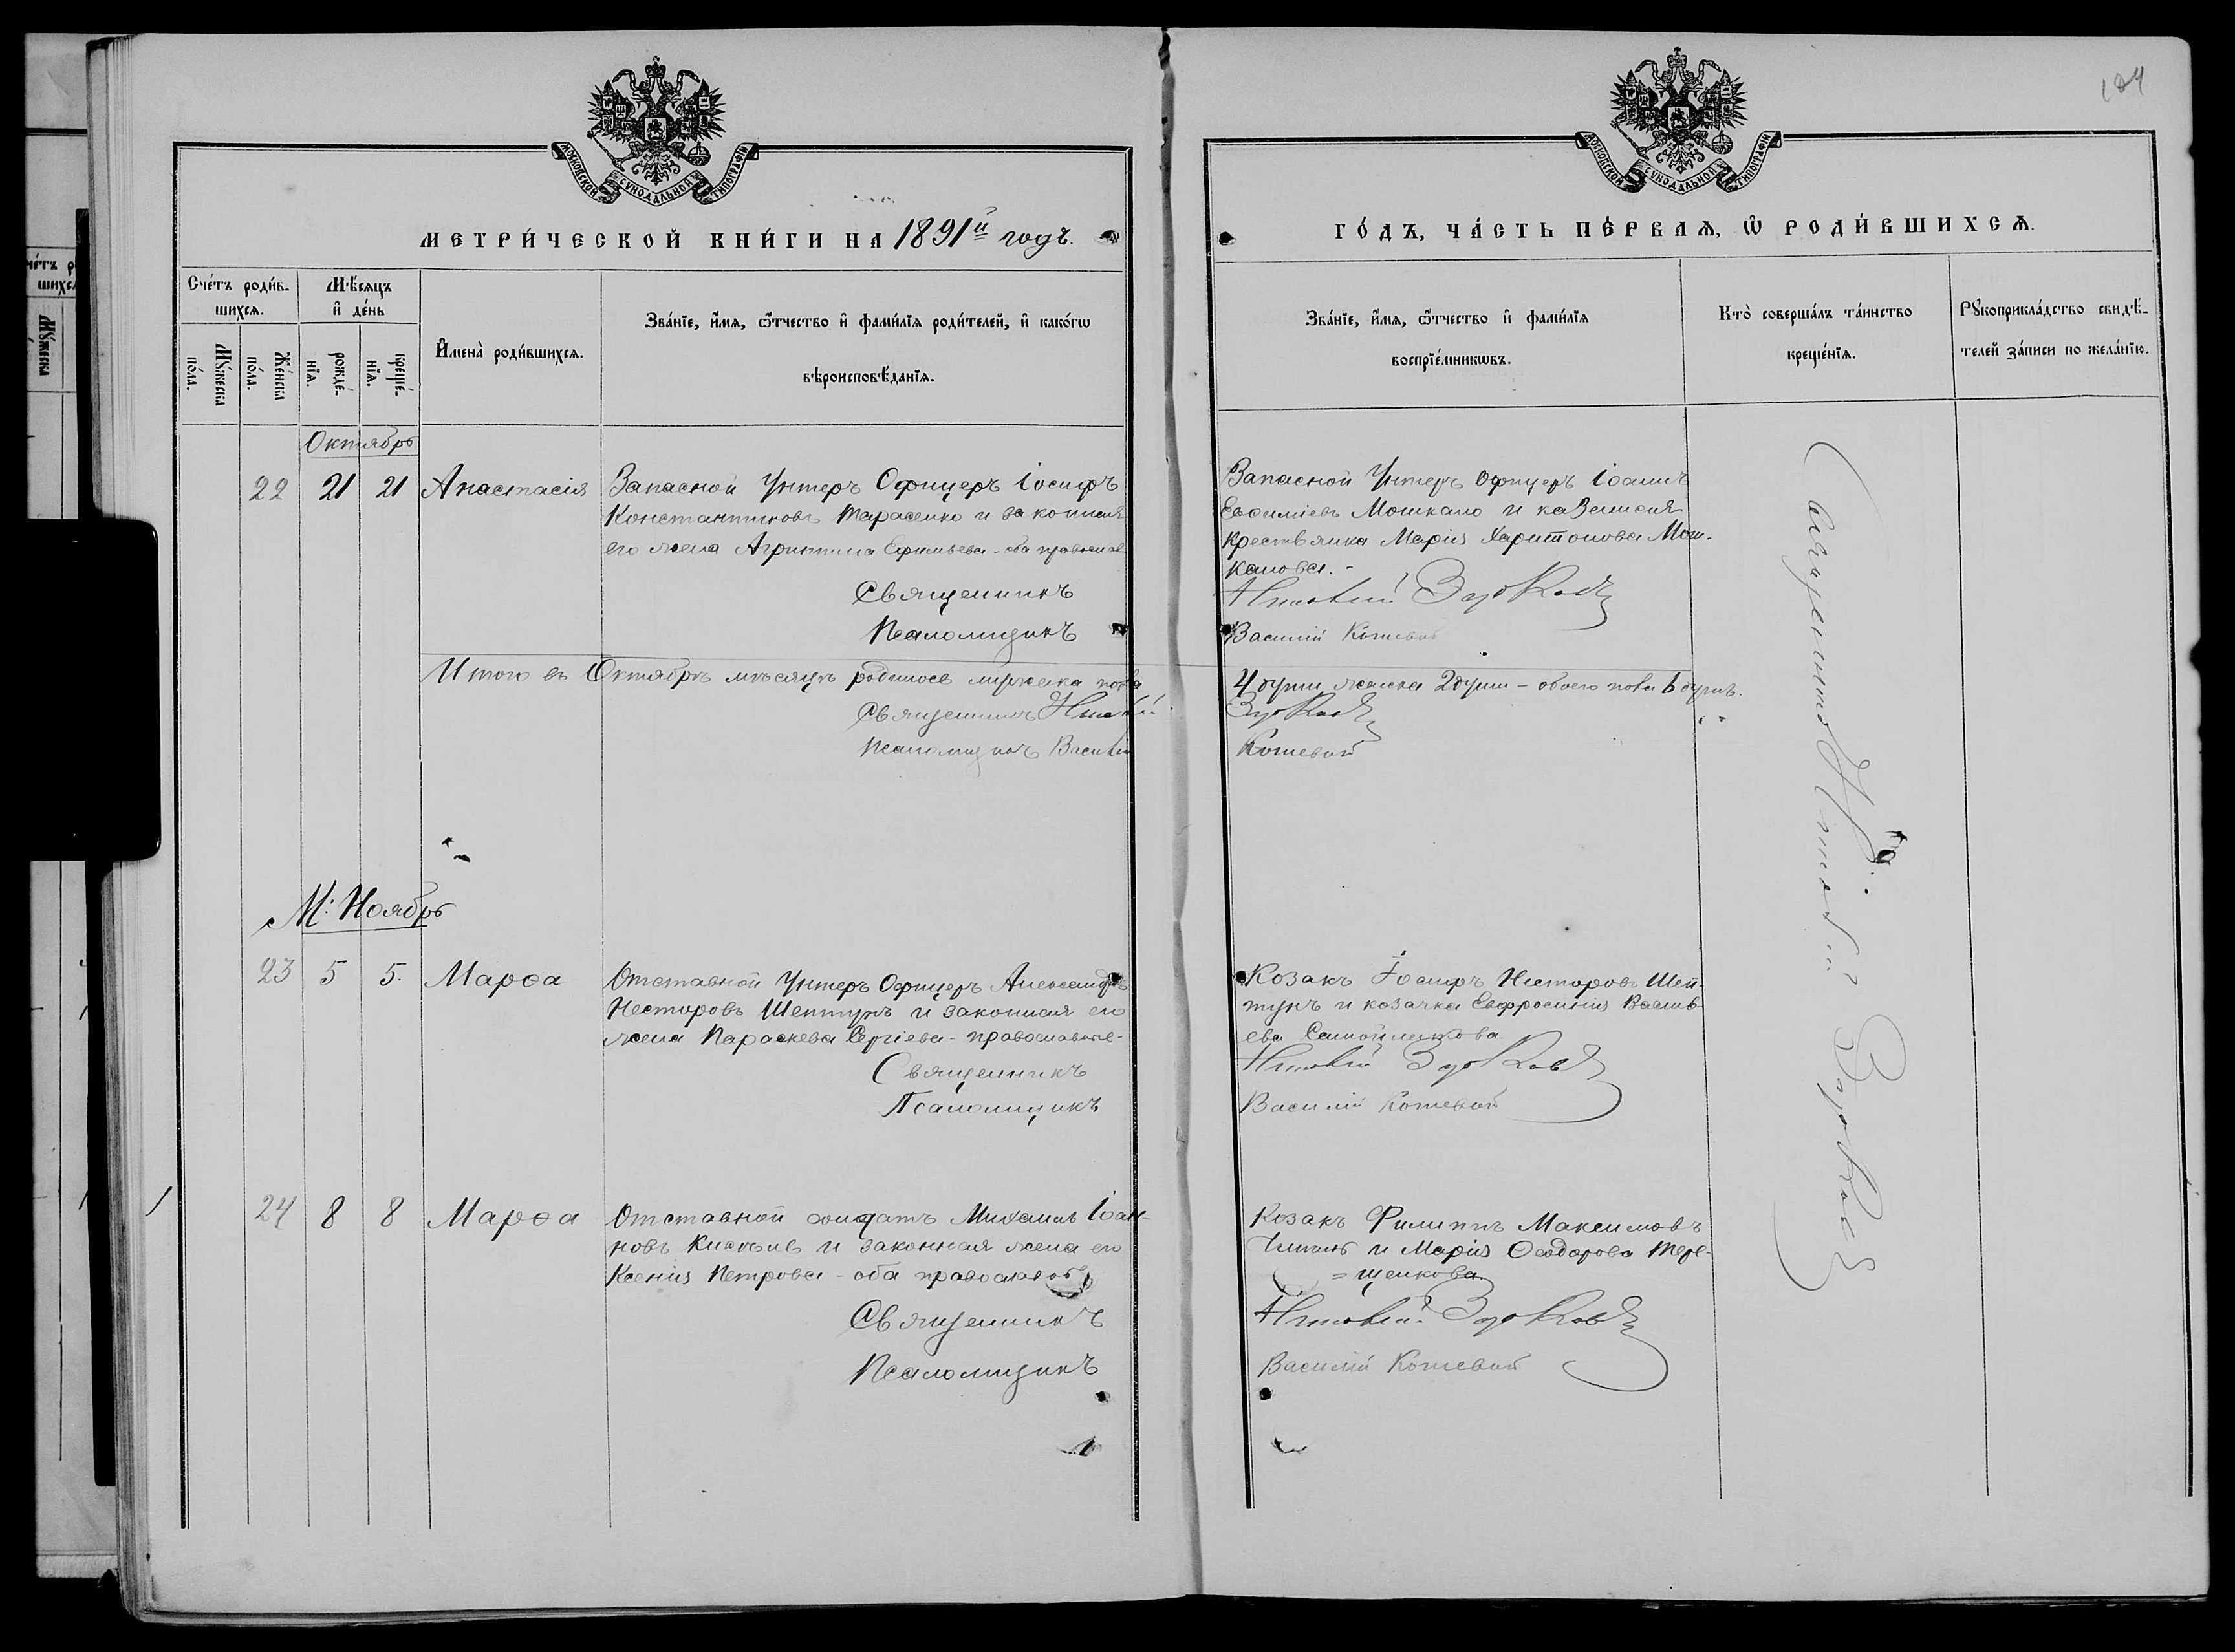 МОСКОВСКОЙ СѴНОДАЛЬНОЙ ТИПОГРАФІИ
МЕТРИ́ЧЕСКОЙ КНИ́ГИ НА 1891й годъ.
Сче́тъ роди́в-
шихсѧ.
Мѣ́сѧцъ
и҆ де́нь
Мꙋ́жеска
по́ла.
Же́нска
по́ла.
рожде́-
нїѧ.
креще́-
нїѧ.
И҆мена̀ роди́вшихсѧ.
Зва́нїе, и҆́мѧ, ѻ҆́тчество и҆ фами́лїѧ роди́телей, и҆ како́гѡ
вѣроисповѣ́данїѧ.
Октябрь
22 21 21 Анастасія Запасной Унтеръ Офицеръ Іосифъ
Константиновъ Тарасенко и законная
его жена Агриппина Ефимьева - оба православ
Священникъ
Псаломщикъ
Итого въ Октябрѣ мѣсяцѣ родилось мужеска пола
Священникъ
Псаломщикъ Василій
М: Ноябрь
23 5 5. Марѳа Отставной Унтеръ Офицеръ Александръ
Несторовъ Шептунъ и законная его
жена Параскева Сергіева - православные -
Священникъ
Псаломщикъ
24 8 8 Марѳа Отставной солдатъ Михаилъ Іоан-
новъ и законная жена его
Ксенія Петрова - оба православ
Священникъ
Псаломщикъ
124
МОСКОВСКОЙ СѴНОДАЛЬНОЙ ТИПОГРАФІИ
ГО́ДЪ, ЧА́СТЬ ПЕ́РВАѦ, Ѡ҆ РОДИ́ВШИХСѦ.
Зва́нїе, и҆́мѧ, ѻ҆́тчество и҆ фами́лїѧ
воспрїе́мникѡвъ.
Кто̀ соверша́лъ та́инство
креще́нїѧ.
Рꙋкоприкла́дство свидѣ́-
телей за́писи по жела́нїю.
Запасной Унтеръ Офицеръ Іоаннъ
Евѳиміевъ Мошкало и
крестьянка Марія Харитонова Мош-
калова. -
Василій Кошевой
4 души женска 2 души - обоего пола 6 душъ.
Кошевой
Козакъ Іосифъ Несторовъ Шеп-
тунъ и козачка Евфросинія Василь
ева Самойленкова
Василій Кошевой
Козакъ Филиппъ Максимовъ
и Марія Ѳеодорова Тере-
= щенкова
Василій Кошевой
Священникъ